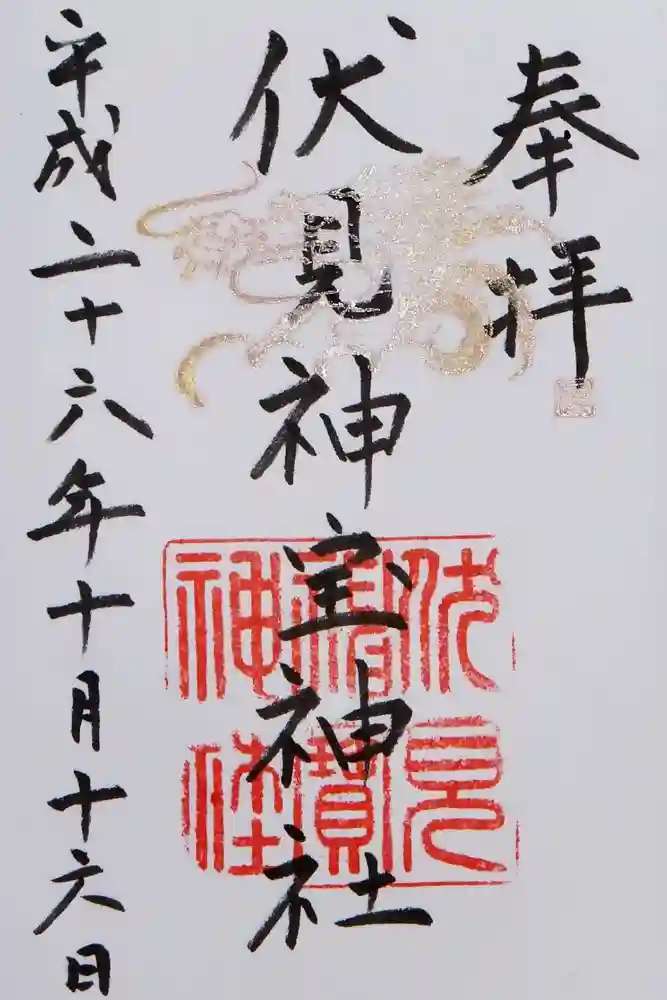 奉拝
伏見神宝神社
平成二十六年十月十六日
伏見
神寶
神社